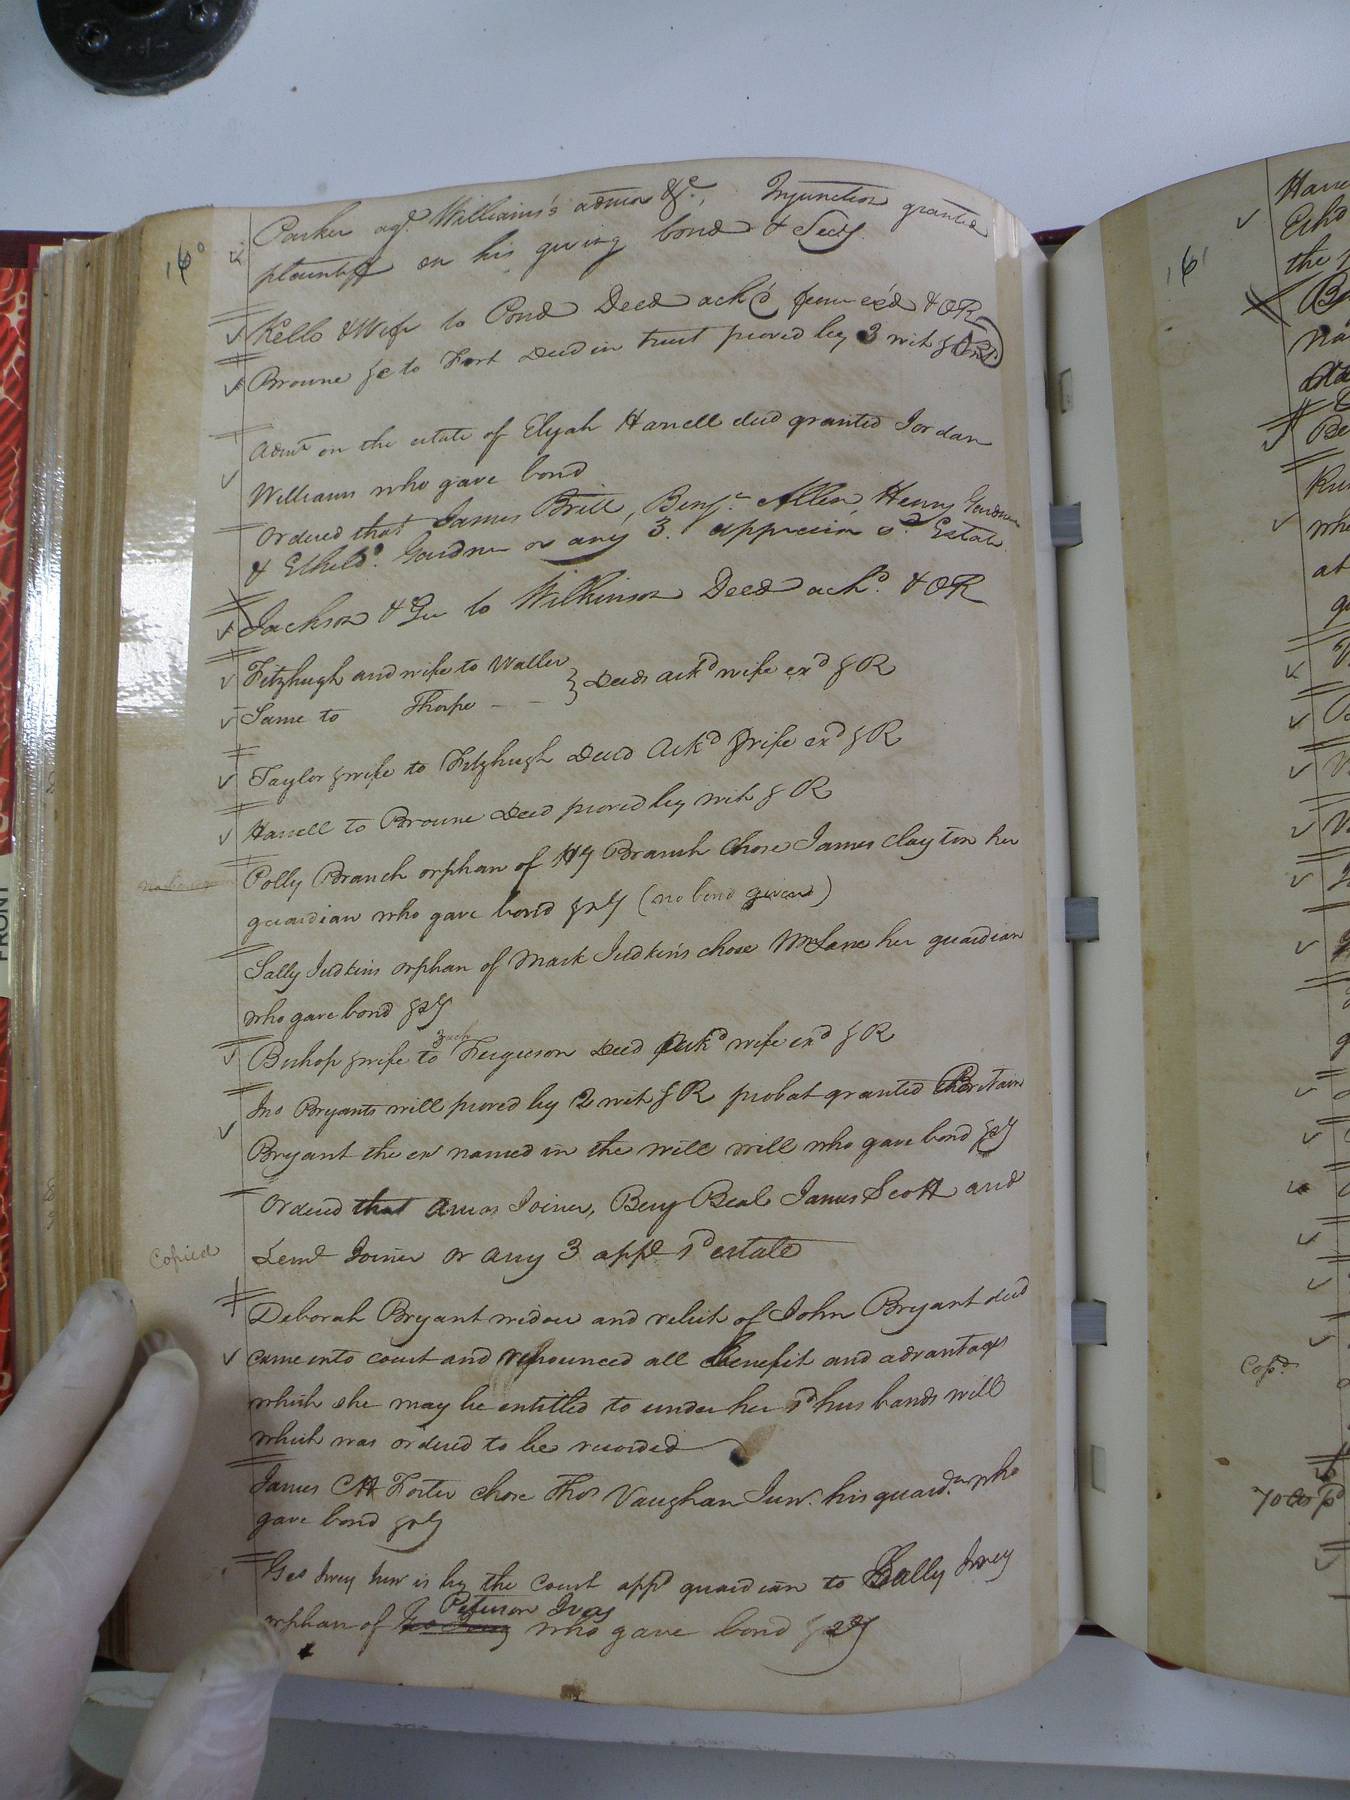 160
Parker agt. Williams's admor &c., Injunction granted
plaintiff on his giving bond & Secy.
Kello & Wife to Pond Deed ack'd feme ex'd & OR
Browne &c to Fort Deed in trust proved by 3 wit & OR
Admn on the estate of Elijah Harrell decd granted Jordan
Williams who gave bond
Ordered that James Britt, Benjn Allen, Henry Gardner
& Etheldd. Gardner or any 3. appraise sd Estate.
Jackson & Ux to Wilkinson Deed ackd. & OR
Fitzhugh and wife to Waller } Deeds ackd wife exd & R
Same to Thorpe - -
Taylor & wife to Fitzhugh Deed Ackd wife exd & R
Harrell to Browne Deed proved by wit & R
Polly Branch orphan of Hy Branch chose James Clayton her
guardian who gave bond &cy (no bond given)
Sally Judkins orphan of Mark Judkins chose Wm Lane her guardian
who gave bond &cy
Zach
Bishop & wife to Ferguson Deed Ackd wife exd & R
Jno Bryants will proved by 2 wit & R probat granted Britain
Bryant the exr named in the will will who gave bond &cy
Ordered that Amos Joiner, Benj Beal James Scott and
Copied
Leml Joiner or any 3 appe sd estate
Deborah Bryant widow and relict of John Bryant decd
came into court and renounced all benefit and advantage
which she may be entitled to under her sd husbands will
which was ordered to be recorded
James Forter chose Thos Vaughan Junr. his guardn who
gave bond &cy
Geo Ivey Junr is by the court appd guardian to Sally Ivey
Peterson Ivey
orphan of who gave bond &cy
161
Copd.
70 Cts pd